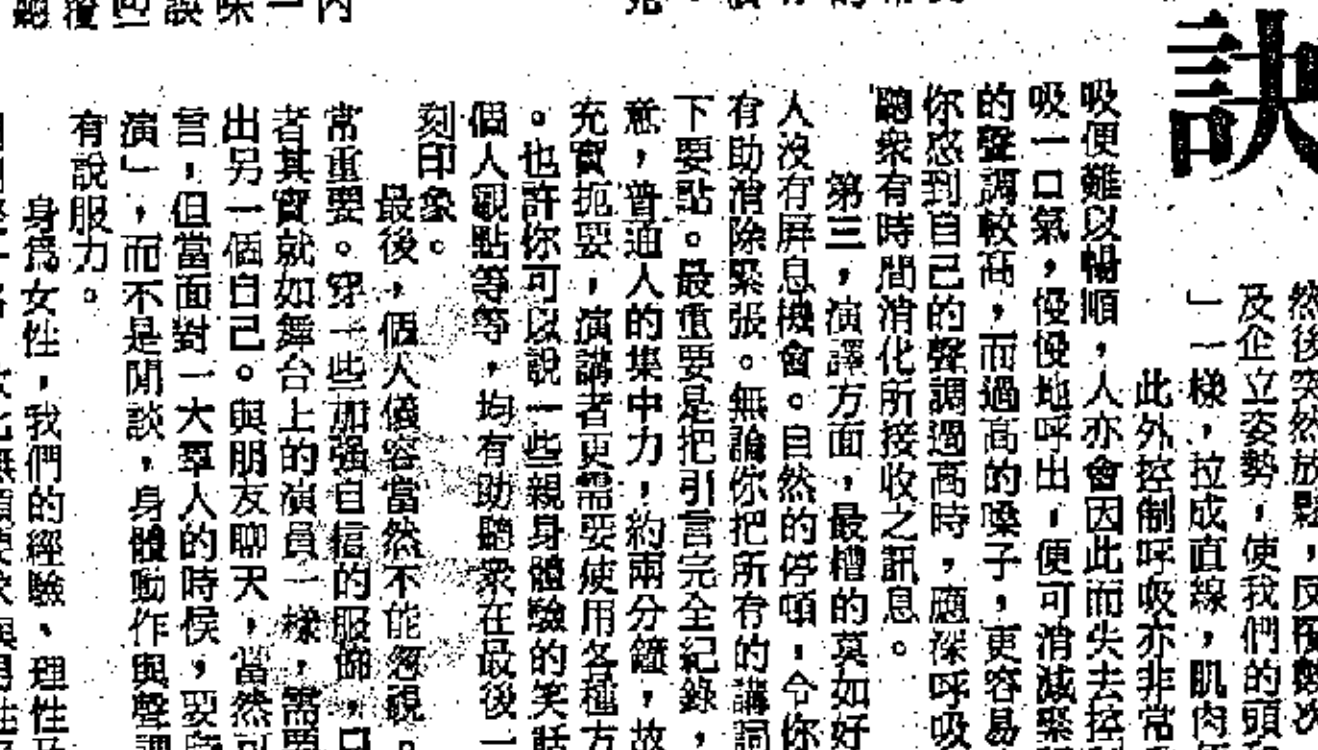 訣
然後突然放鬆,反覆數次
及企立姿勢,使我們的頭
」一樣,拉成直線,肌肉
此外控制呼吸亦非常
吸便難以暢順,人亦會因此而失去控
吸一口氣,慢慢地呼出,便可消減緊
的聲調較高,而過高的嗓子,更容易
你感到自己的聲調過高時,應深呼吸
聽衆有時間消化所接收之訊息。
第三,演譯方面,最糟的莫如好
人沒有屏息機會。自然的停頓,令你
有助消除緊張。無論你把所有的講詞
下要點。最重要是把引言完全紀錄,
意,普通人的集中力,約兩分鐘,故
充實扼要,演講者更需要使用各種方
。也許你可以說一些親身體驗的笑話
個人觀點等等,均有助聽衆在最後一
刻印象。
最後,個人儀容當然不能忽視。
常重要。穿一些加强自信的服飾,
者其實就如舞台上的演員一樣,需要
出另一個自己。與朋友聊天,當然可
言,但當面對一大羣人的時候,要
演」,而不是閒談,身體動作與聲調
有說服力。
身爲女性,我們的經驗、理性及